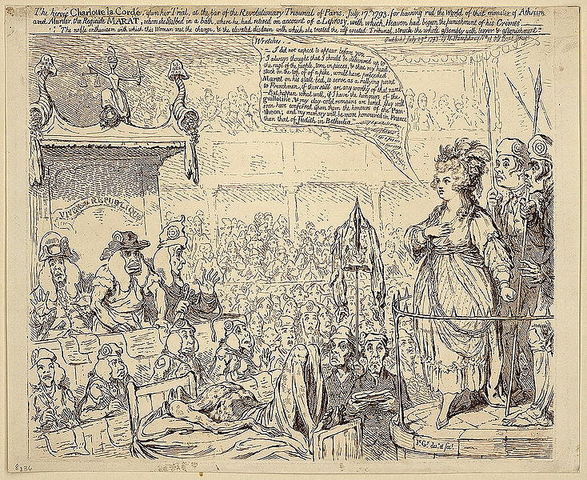 The heroic Charlotte la Cordé, upon her Trial, at the bar of the Revolutionary Tribunal of Paris, July 17th 1793, for having rid the World of that monster of Atheism
and Murder, the Regicide MARAT, whom she Stabbed in a bath, where he had retired on account of a Leprosy, with which, Heaven had begun the punishment of his Crimes
"The noble enthusiasm with which this Woman met the charge, & the elevated disdain with which she treated the self created Tribunal, struck the whole assembly with terror & astonishment."
Publish'd July 29th 1793 by H. Humphrey No. 18 Old Bond Street
Wretches,
I did not expect to appear before you
I always thought that I should be delivered up to
the rage of the people, torn in pieces, & that my head,
stuck on the top of a pike, would have preceded
Marat on his state-bed, to serve as a rallying point
to Frenchmen, if there still are any worthy of that name.
But, happen what will, if I have the honours of the
guillotine, & my clay-cold remains are buried, they will
soon have conferred upon them the honours of the Pan-
theon; and my memory will be more honoured in France
than that of Judith in Bethulia
VIVE LA REPUBLIQUE
Js. Gy. des. et fect.